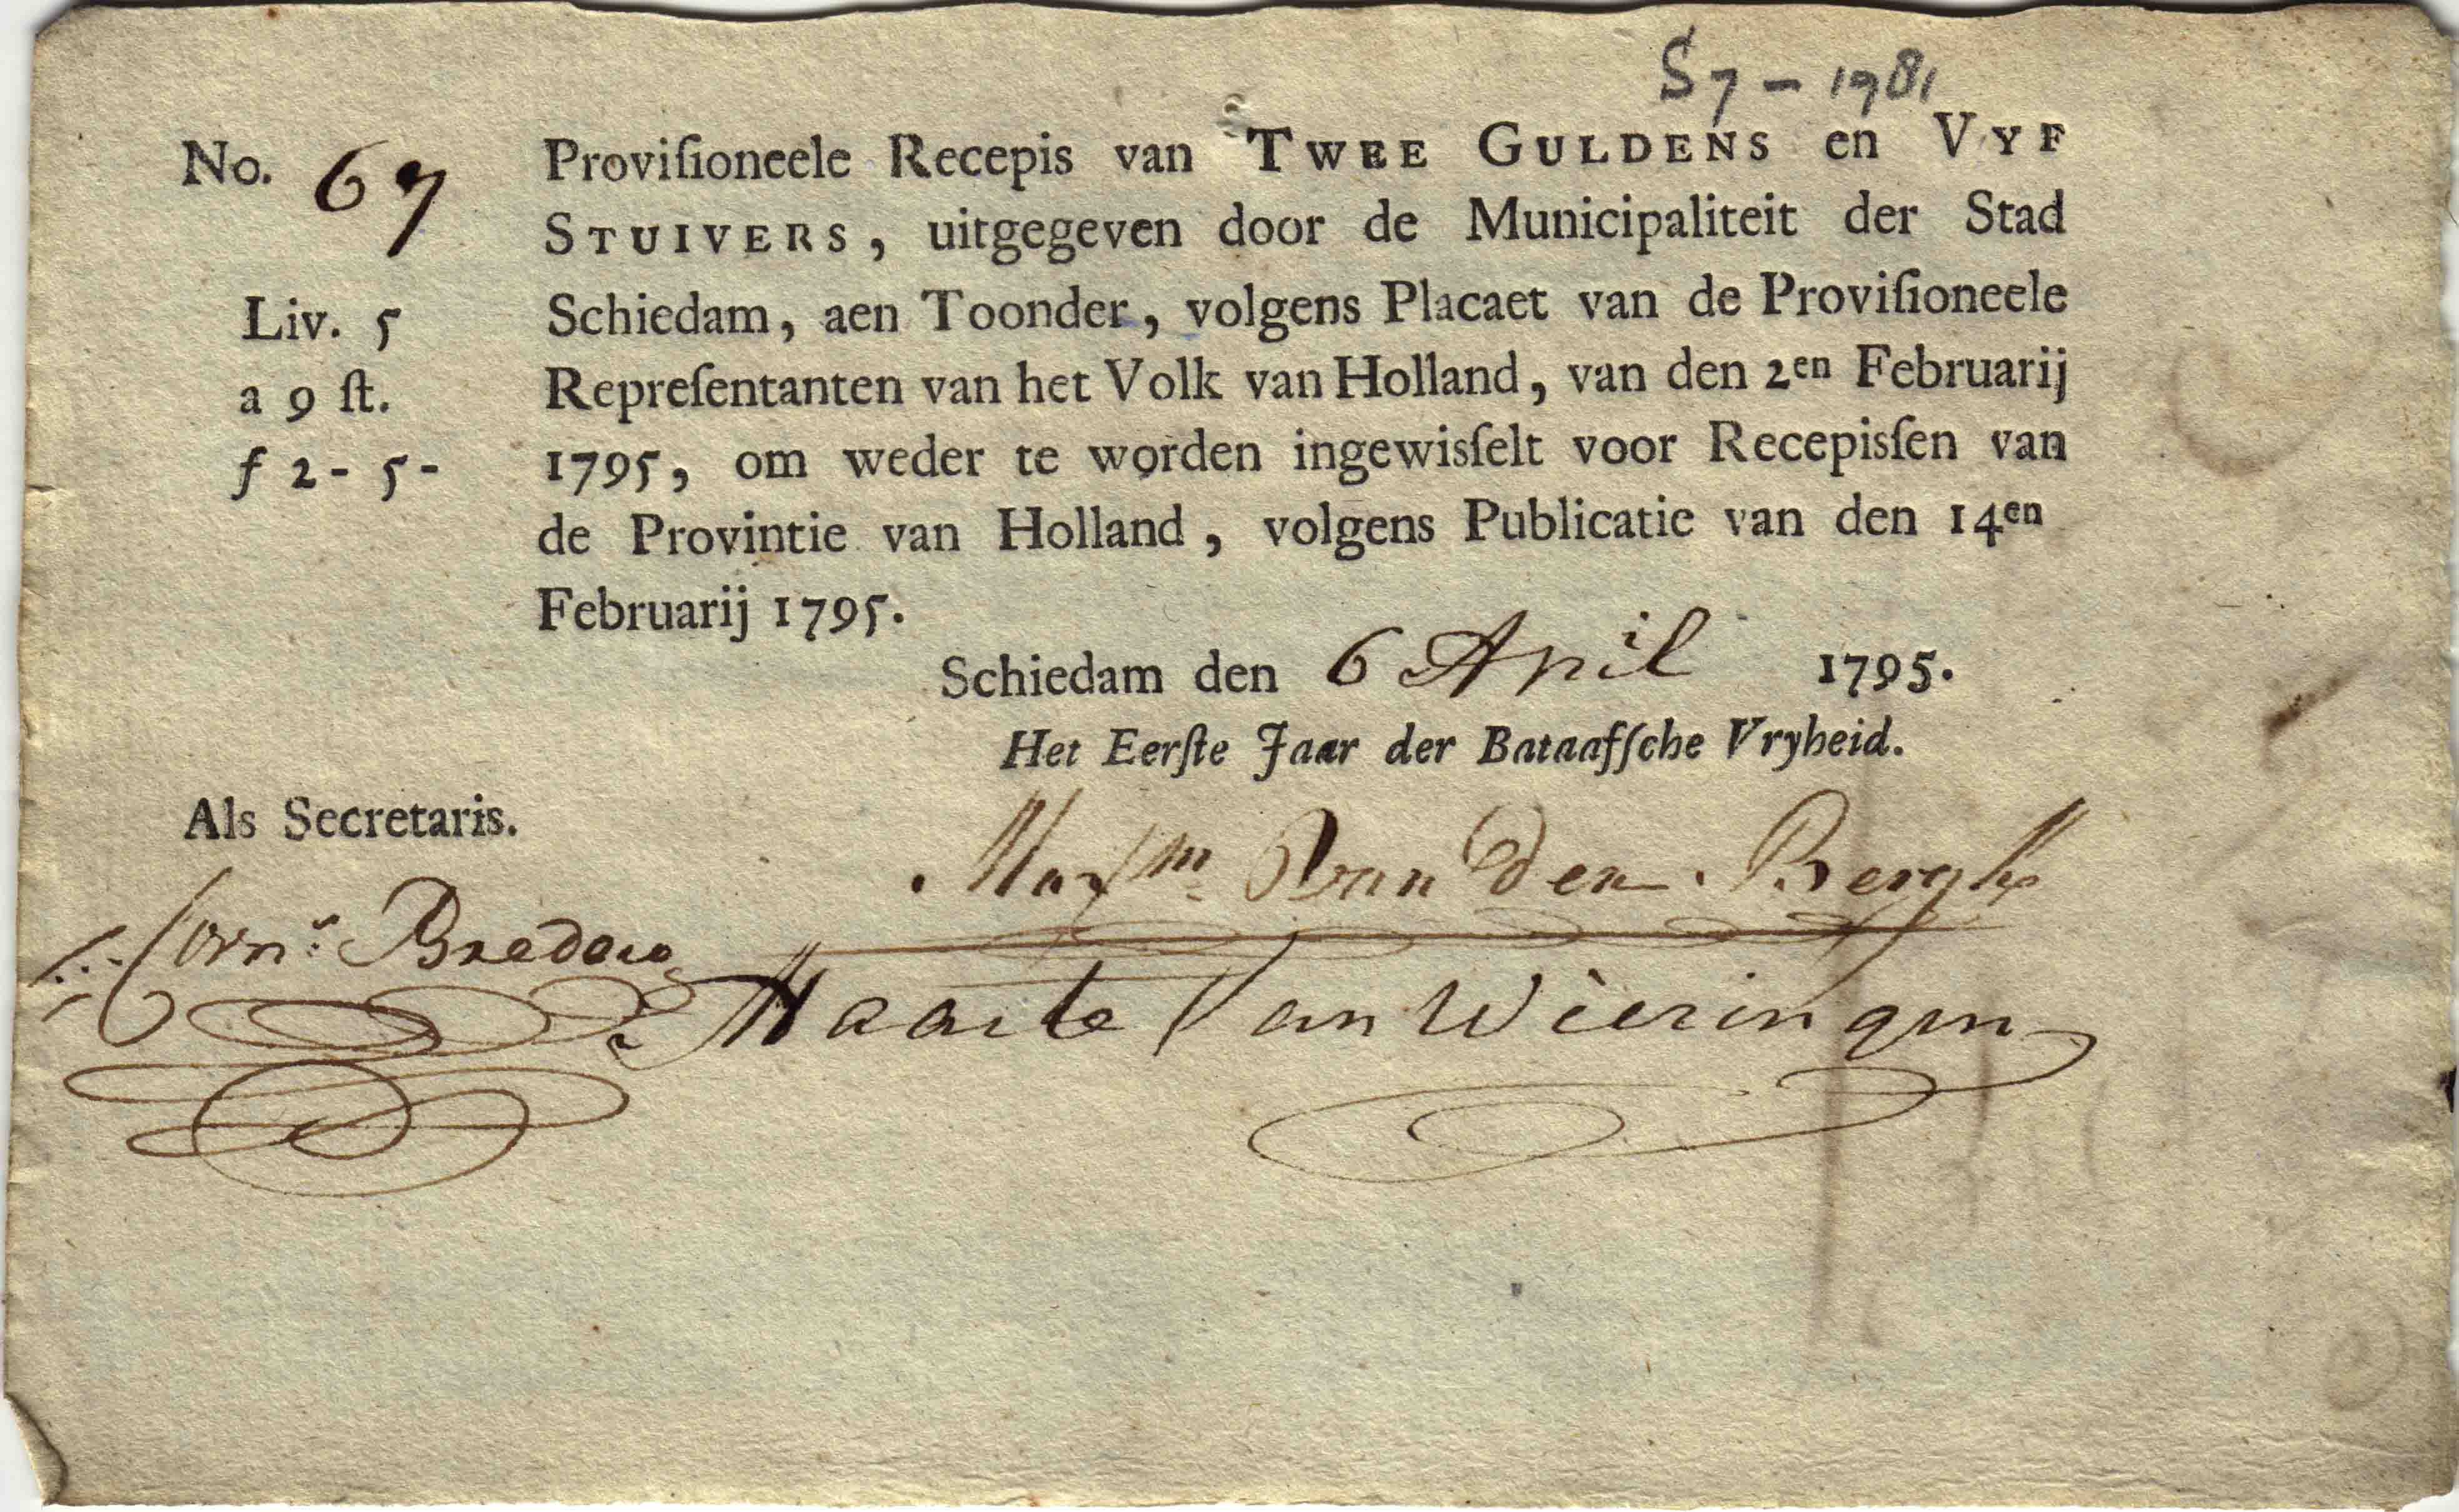 S7 - 1981
No. 67
Proviſioneele Recepis van TWEE GULDENS en VYF
STUIVERS, uitgegeven door de Municipaliteit der Stad
Liv. 5
Schiedam, aen Toonder, volgens Placaet van de Proviſioneele
a 9 ſt.
Repreſentanten van het Volk van Holland, van den 2en Februarij
f 2 - 5 -
1795, om weder te worden ingewisſelt voor Recepisſen van
de Provintie van Holland, volgens Publicatie van den 14en
Februarij 1795.
Schiedam den 6 April 1795.
Het Eerſte Jaar der Bataafſche Vryheid.
Als Secretaris.
Van den Bergh
Corns:
Van Wieringen